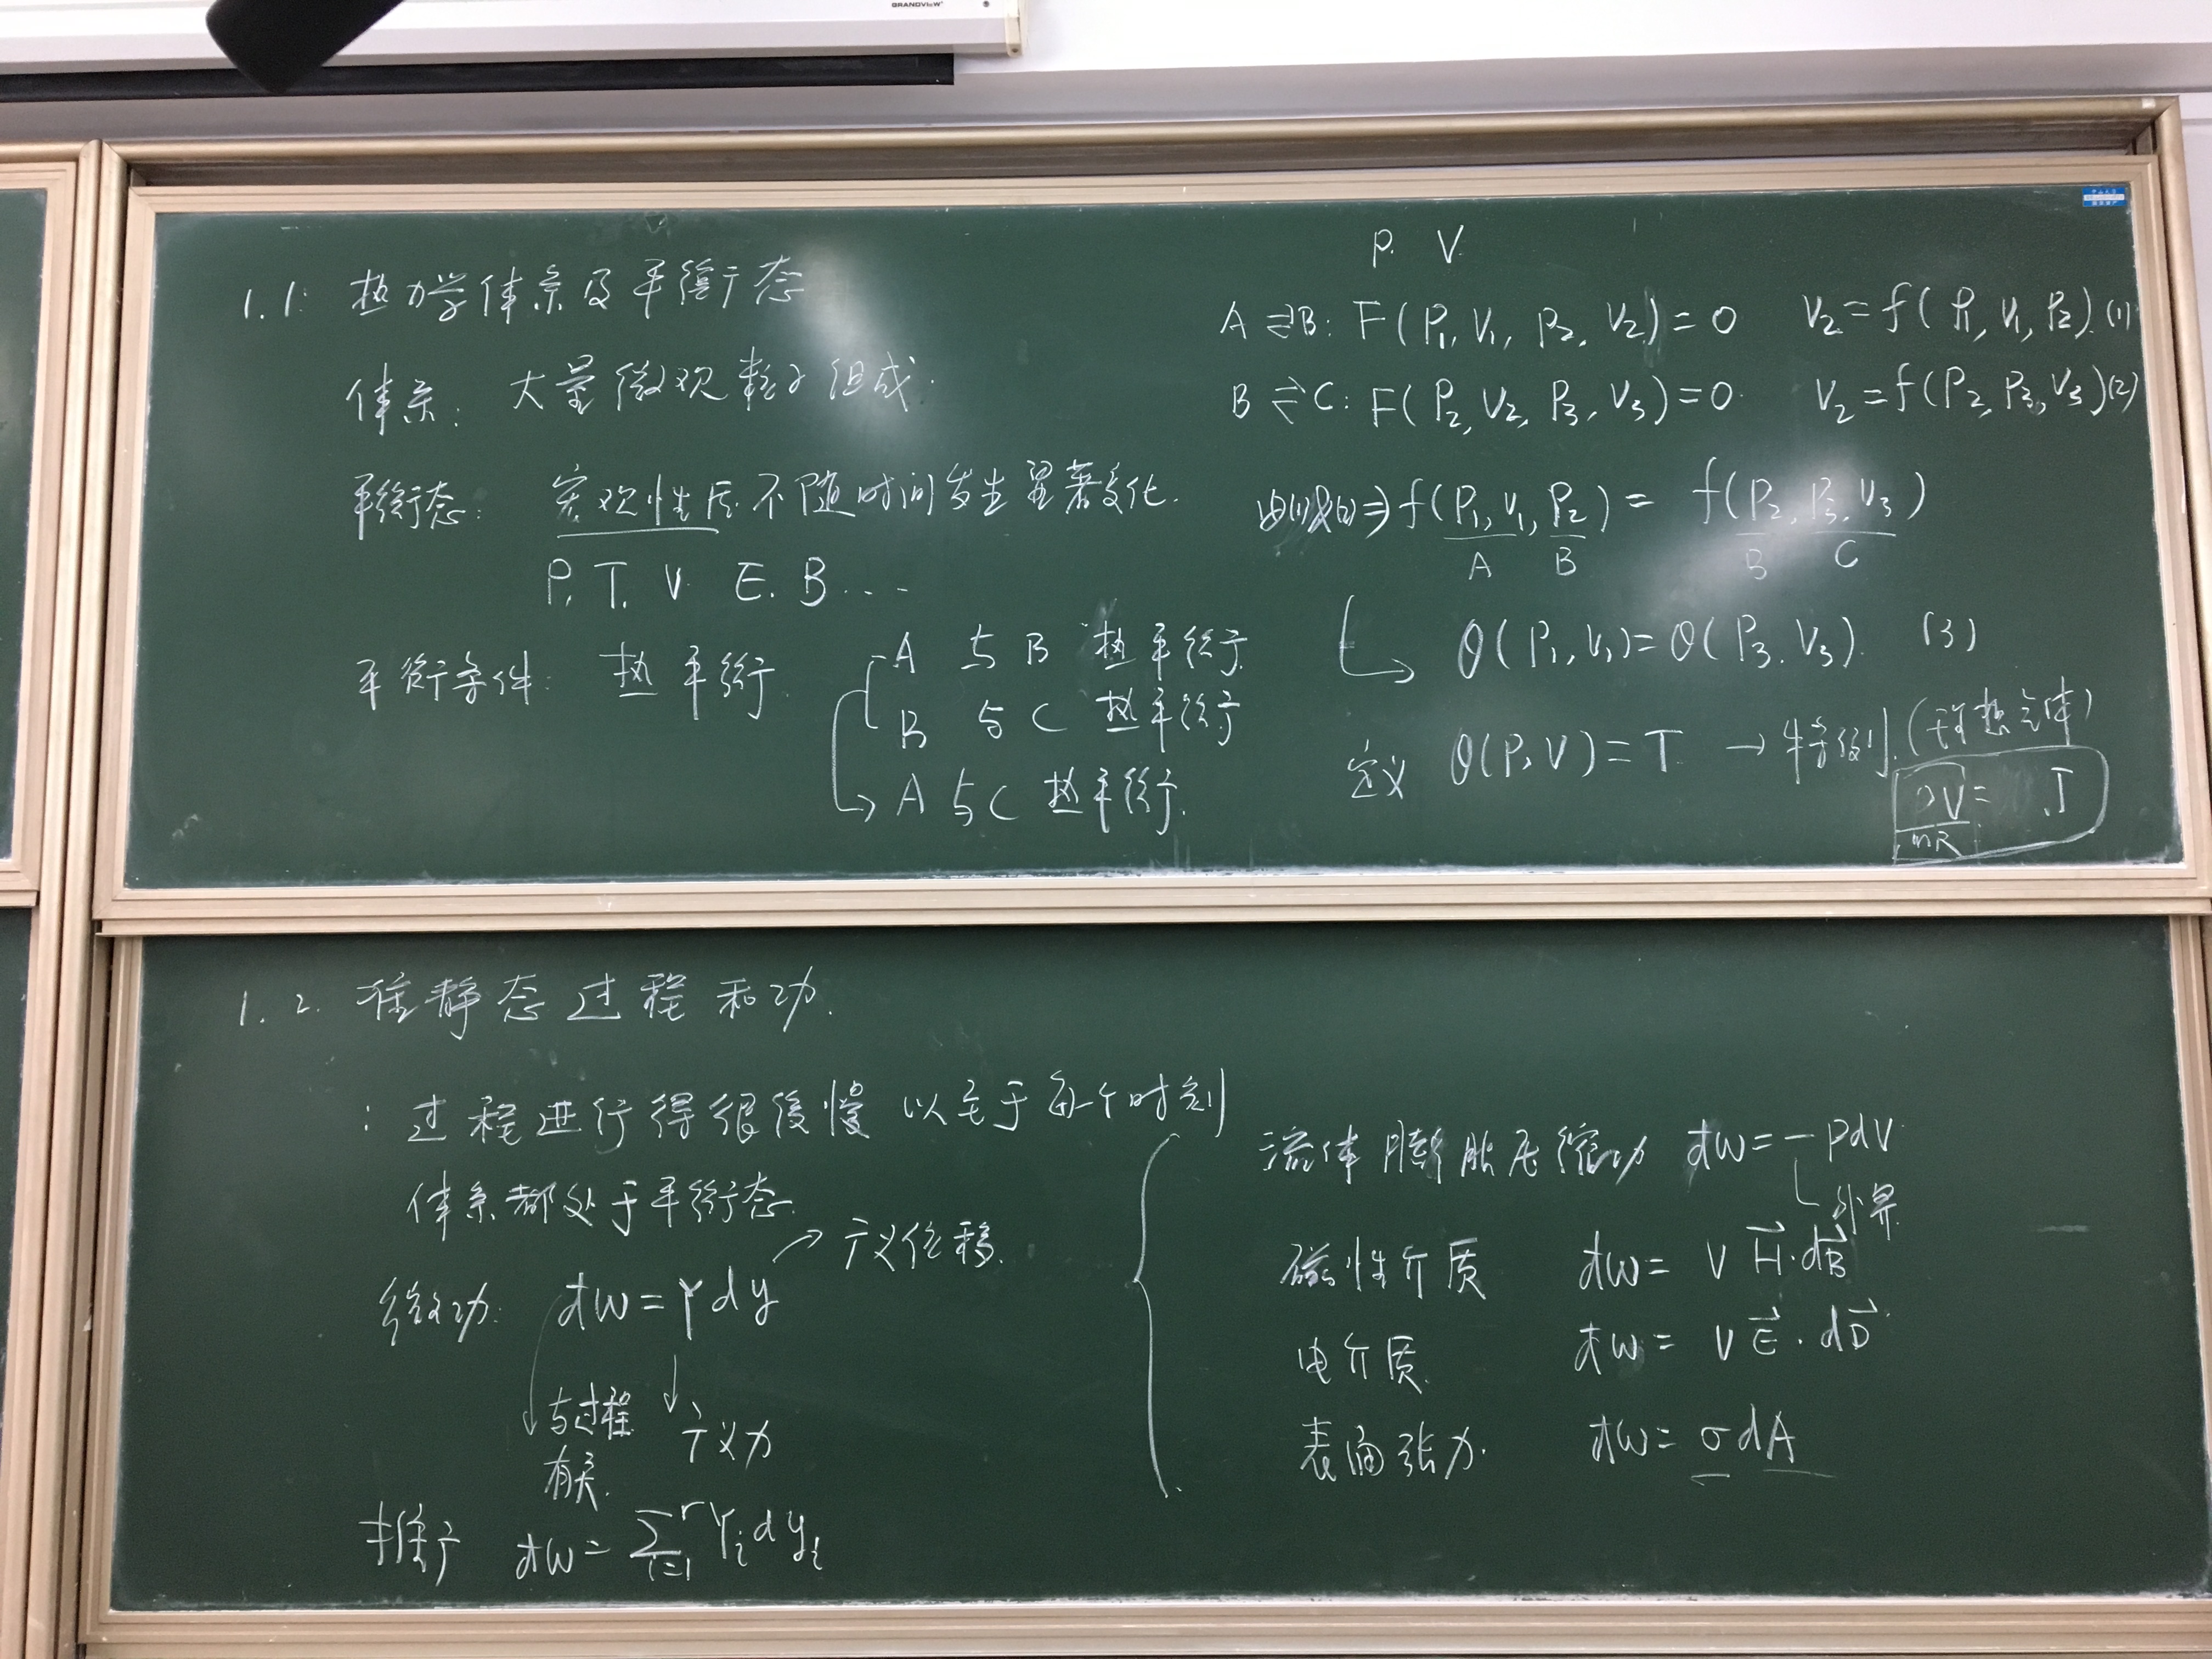 GRANDVIEW
1.1: 热力学体系及平衡态
体系: 大量微观粒子组成.
平衡态: 宏观性质不随时间发生显著变化.
P. T. V. E. B...
平衡条件: 热平衡.
A 与 B 热平衡
B 与 C 热平衡
A 与 C 热平衡.
P. V.
A ⇌ B: F(P₁, V₁, P₂, V₂) = 0 V₂ = f(P₁, V₁, P₂). (1)
B ⇌ C: F(P₂, V₂, P₃, V₃) = 0. V₂ = f(P₂, P₃, V₃) (2)
由(1)及(2) ⇒ f(P₁, V₁, P₂) = f(P₂, P₃, V₃)
A B B C
↳ θ(P₁, V₁) = θ(P₃. V₃). (3)
定义 θ(P, V) = T. → 特例. (理想气体)
PV/nR = T
1.2. 准静态过程和功.
: 过程进行得很缓慢 以至于每个时刻
体系都处于平衡态.
微功: đW = Y dy ↗ 广义位移.
与过程有关. ↓ 广义力
推广 đW = Σᵢ₌₁ʳ Yᵢ dyᵢ
流体膨胀压缩功 đW = -PdV
外界
磁性介质 đW = V H⃗·dB⃗
电介质 đW = V E⃗·dD⃗
表面张力. đW = σdA